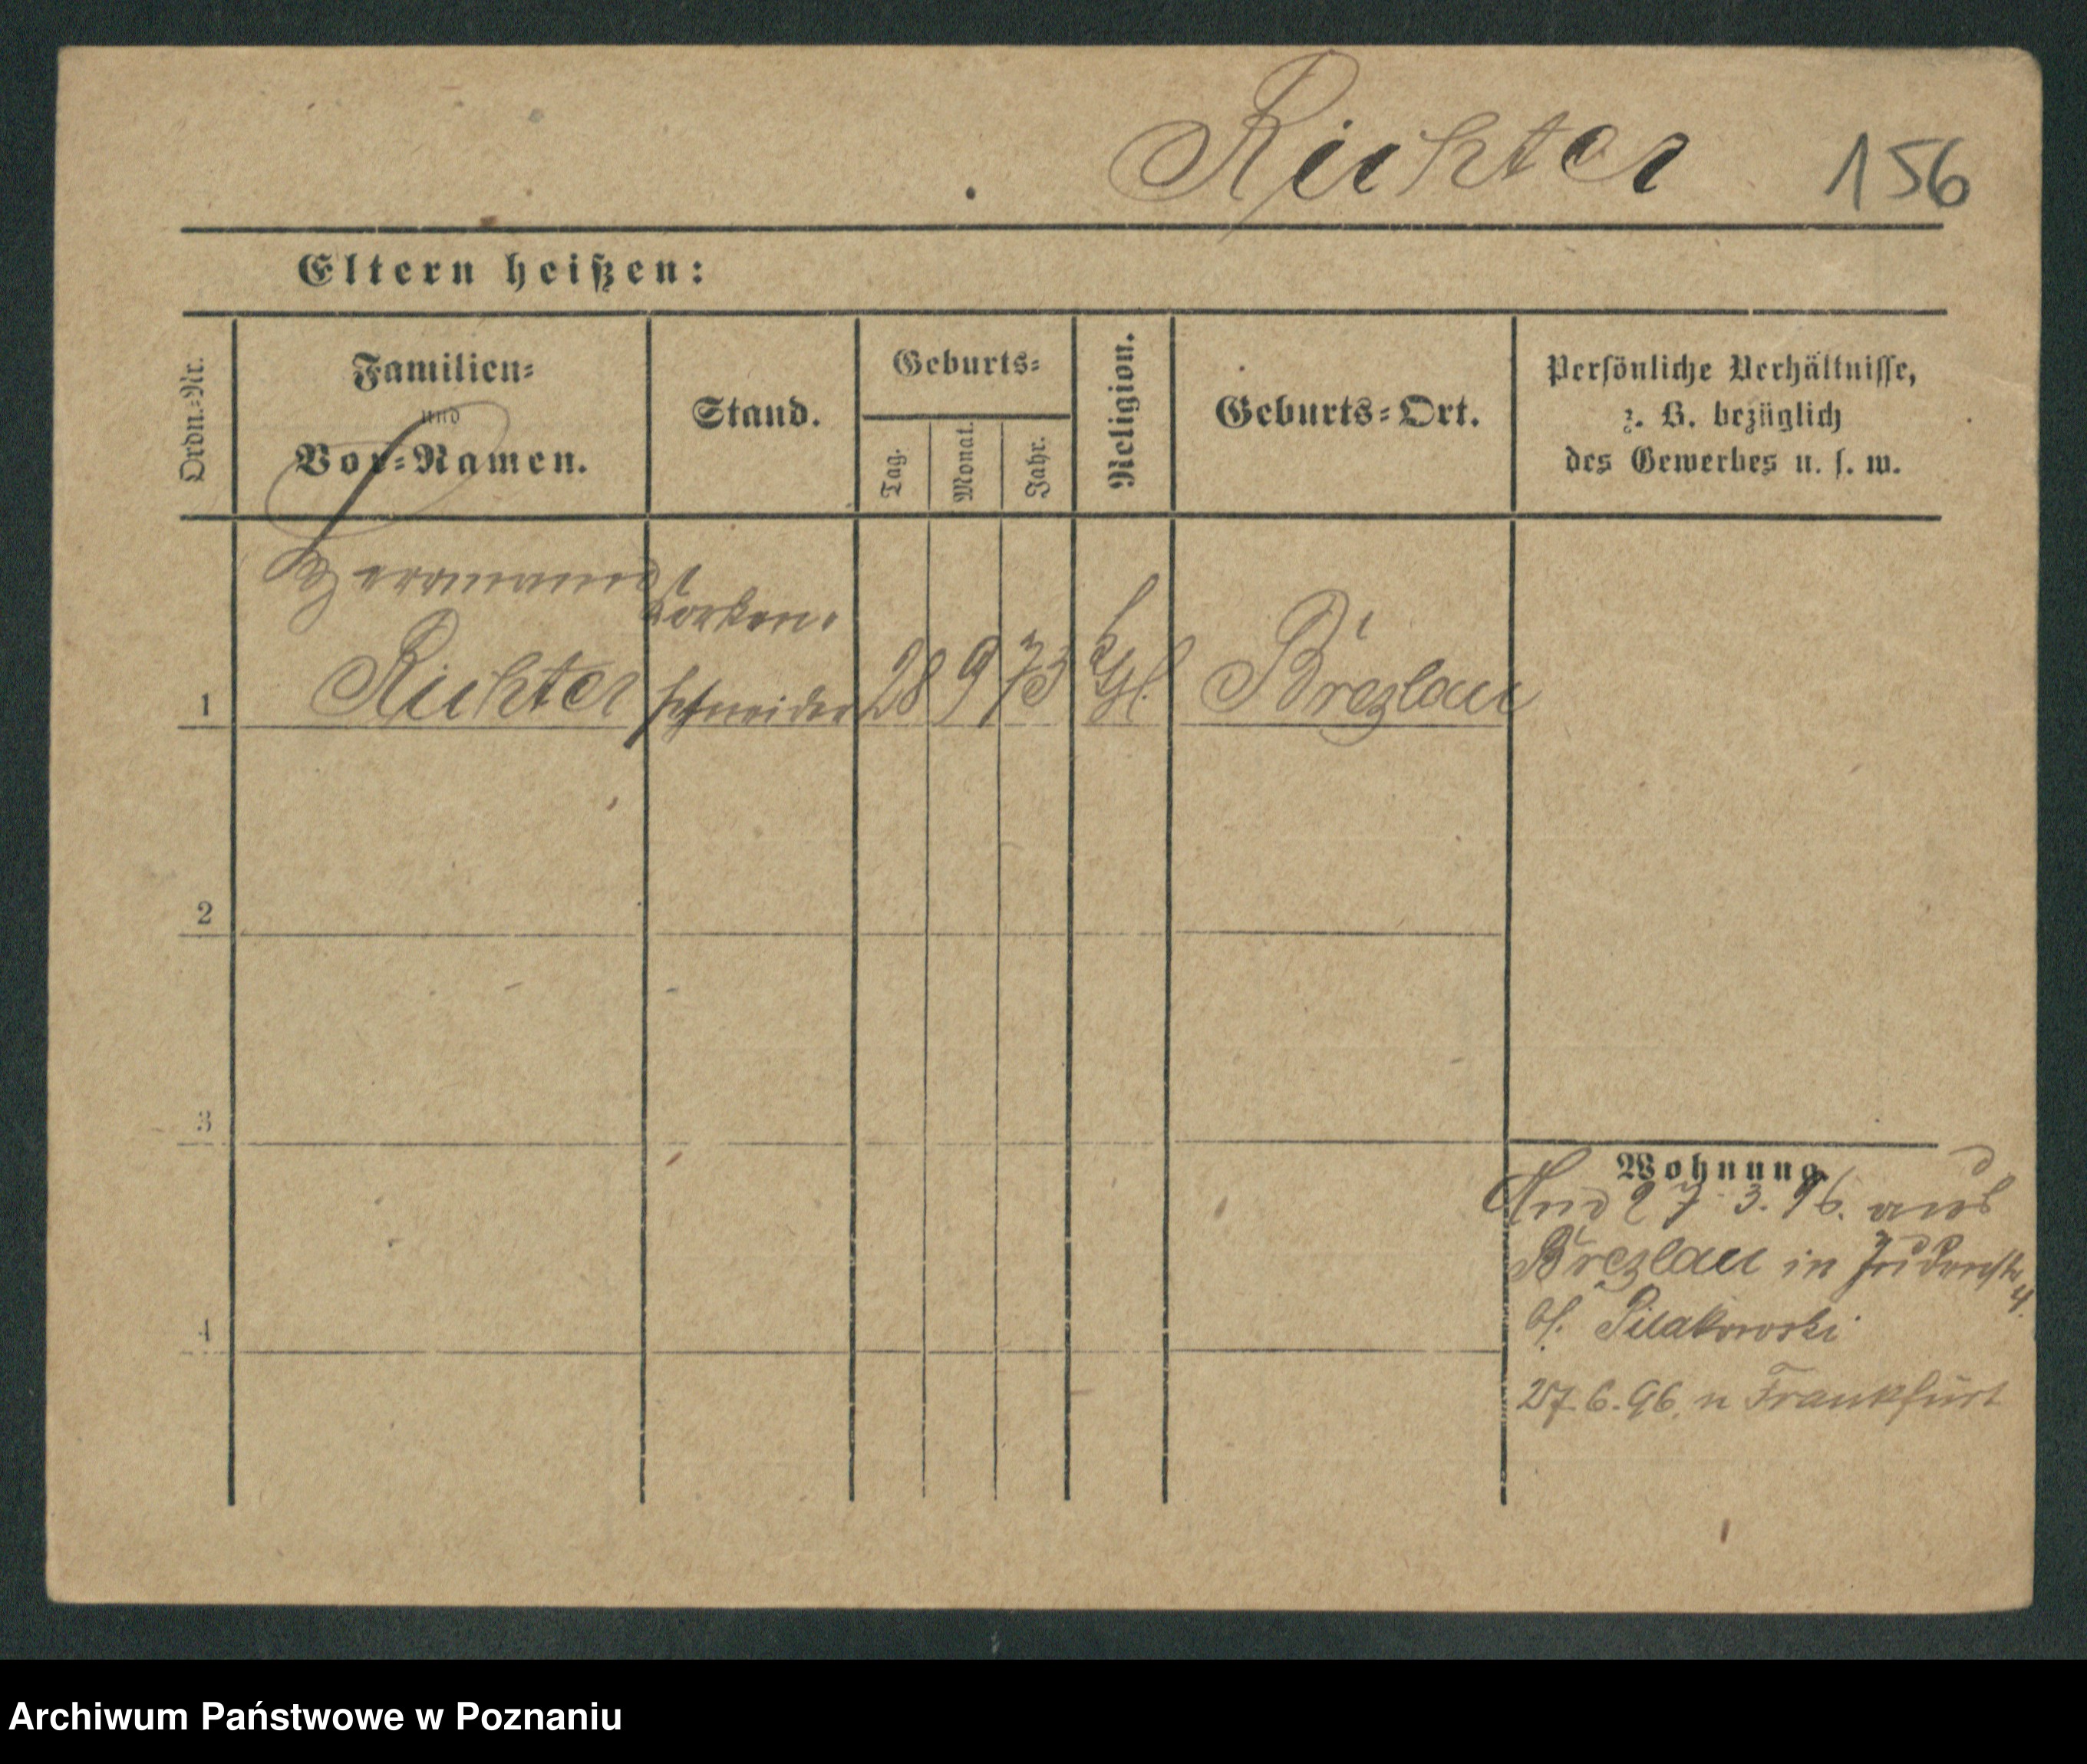 Richter 156
Eltern heißen:
Ordn.-Nr.
Familien-
und
Vor-Namen.
Stand.
Geburts-
Tag.
Monat.
Jahr.
Religion.
Geburts-Ort.
Persönliche Verhältnisse,
z. B. bezüglich
des Gewerbes u. s. w.
Hermann
Korken-
1 Richter schneider 28 9 73 kath. Breslau
2
3
4
Wohnung.
27.3.96. aus
Breslau in Judenstr
4.
bf. Pilakowski
27.6.96. n Frankfurt
Archiwum Państwowe w Poznaniu